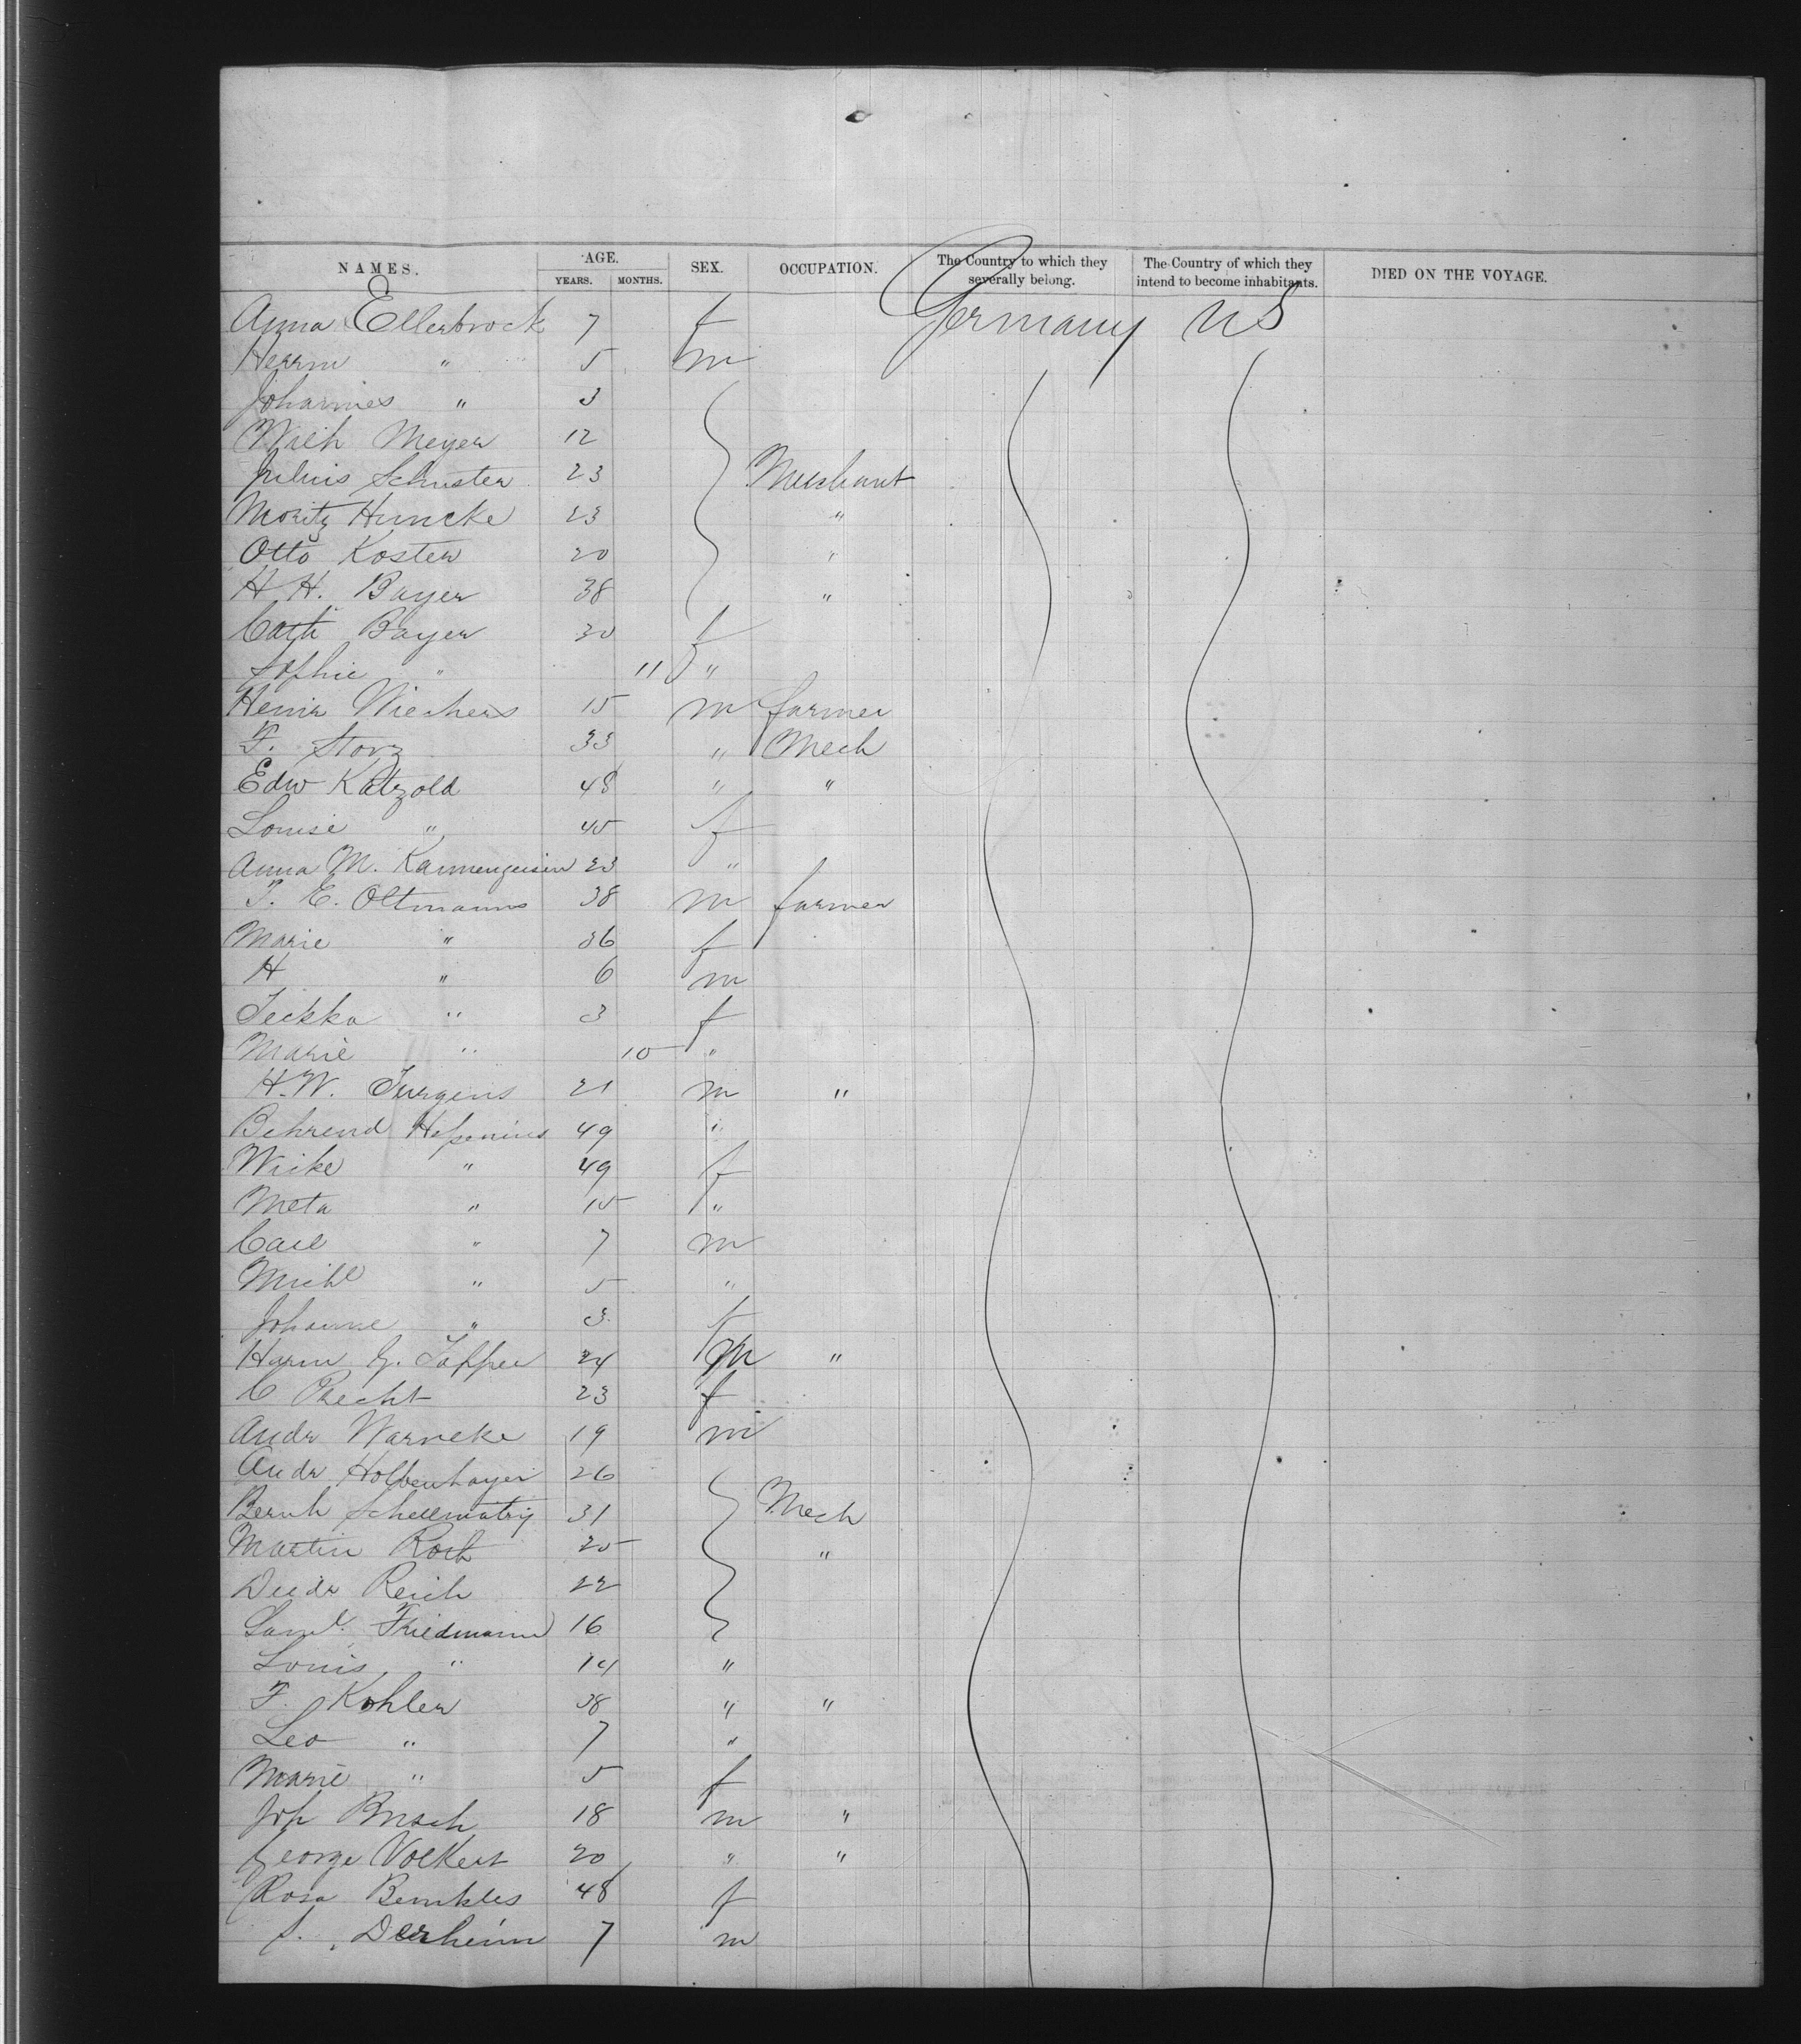 NAMES. AGE. SEX. OCCUPATION. The Country to which they severally belong. The Country of which they intend to become inhabitants. DIED ON THE VOYAGE.
YEARS. MONTHS.
Anna Ellerbrock 7 f Germany US
Herm " 5 m
Johannes " 3
Wilh Meyer 12
Julius Schuster 23 Merchant
Moritz Huncke 23 "
Otto Koster 20 "
H. H. Bayer 38 "
Cath Bayer 30 f
Sophie " 11 "
Heinr Wiechers 15 m farmer
F. Storz 33 " Mech
Edw Katzold 48 " "
Louise " 45 f
Anna M. 23 "
T. E. Oltmanns 38 m farmer
Marie " 36 f
H " 6 m
Teckka " 3 f
Marie " 10 "
H. W. Jurgens 21 m "
Behrend 49 "
Wike " 49 f
Meta " 15 "
Carl " 7 m
Michl " 5 "
Johanne " 3 f
Harm G. Tapper 24 m "
C Precht 23 f
Andr Warneke 19 m
Andr 26
Bernh 31 Mech
Martin Roth 25 "
Reich 22
Saml. Friedmann 16
Louis " 14 "
F. Kohler 38 " "
Leo " 7 "
Marie " 5 f
Joh Busch 18 m "
George Volkert 20 " "
Rosa 48 f
S. Derheim 7 m